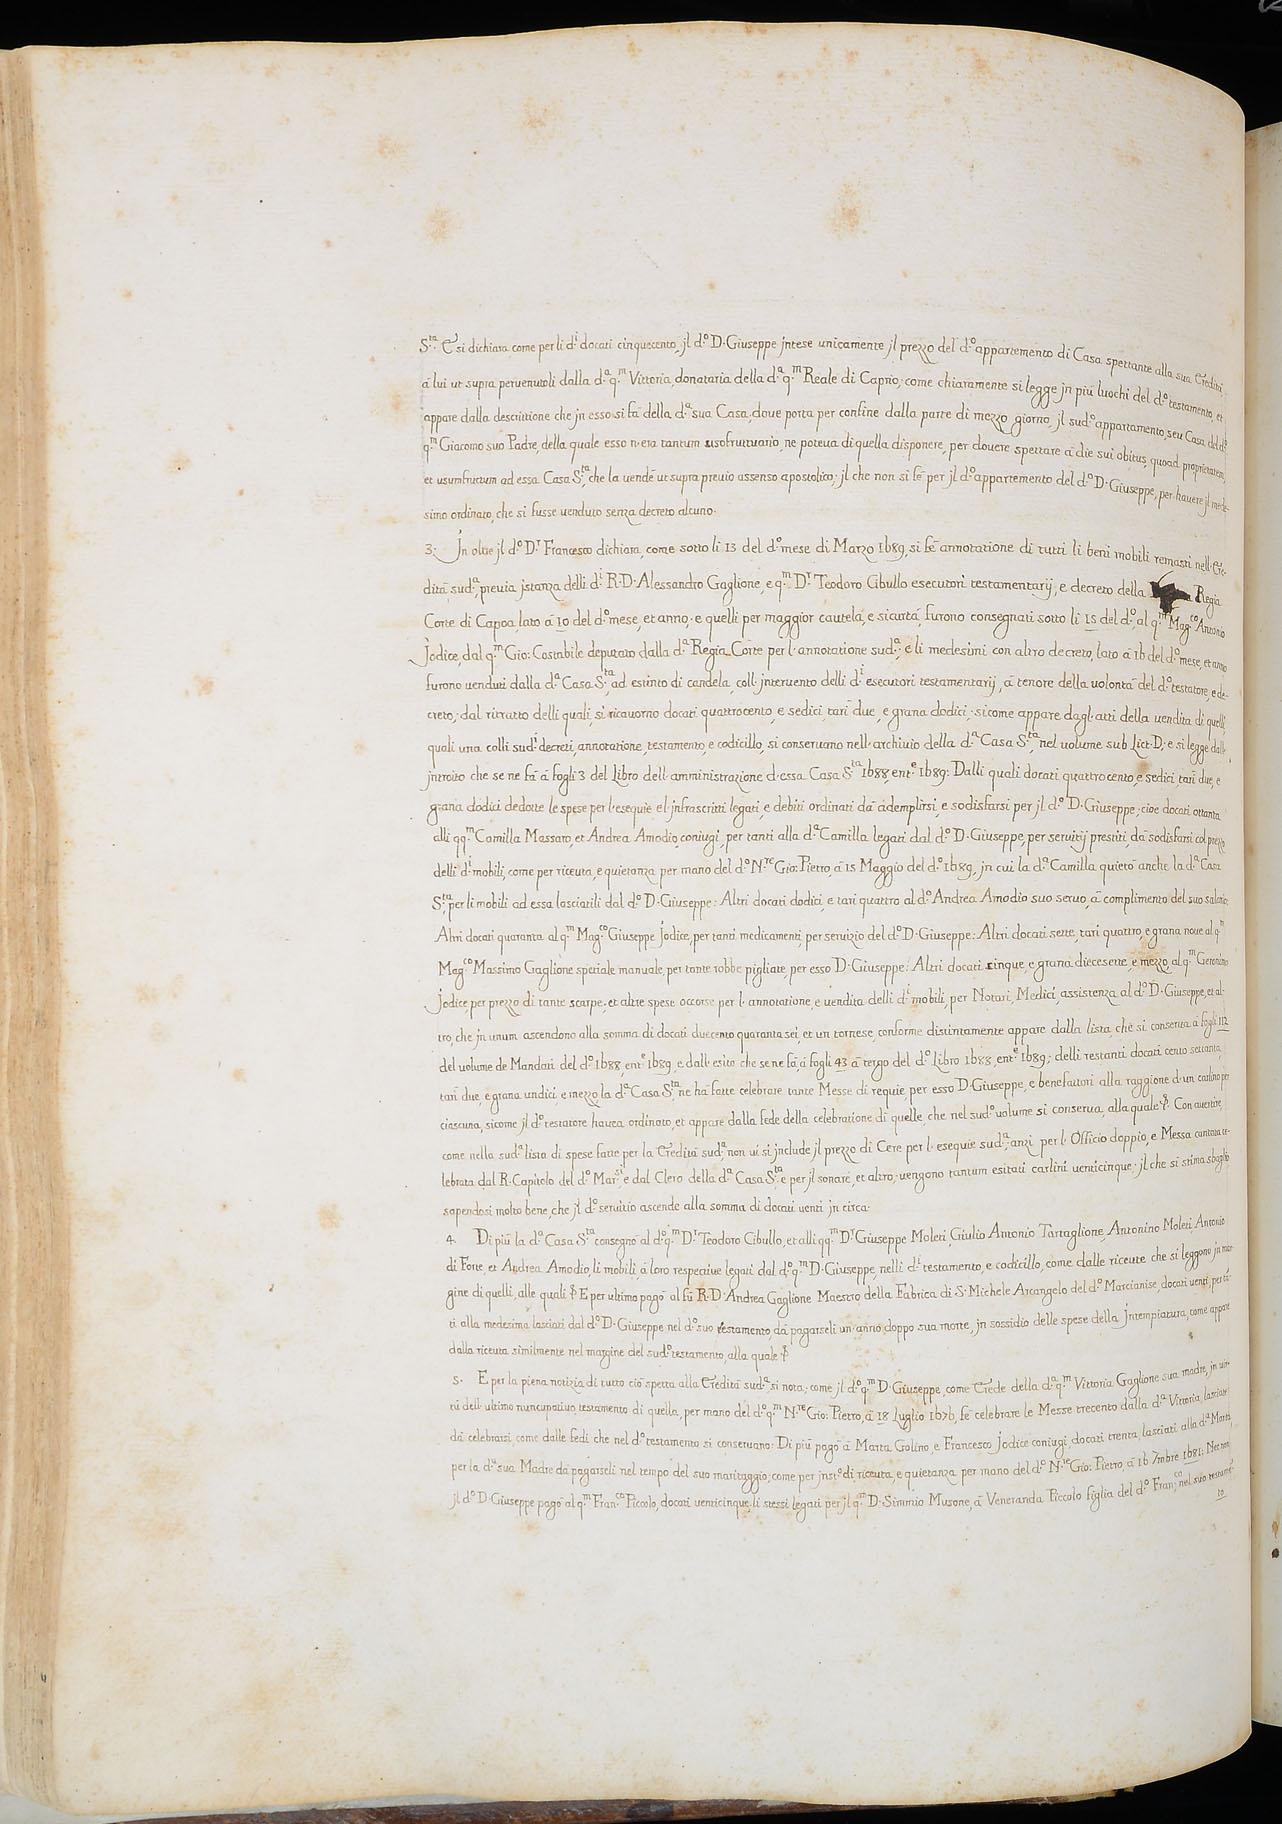 S.ta E si dichiara come per li d.i docati cinquecento, jl d.o D. Giuseppe jntese unicamente jl prezzo del d.o appartemento di Casa spettante alla sua Eredità
à lui ut supra peruenutoli dalla d.a q.m Vittoria, donataria della d.a q.m Reale di Caprio; come chiaramente si legge jn più luochi del d.o testamento, et
appare dalla descrittione che jn esso si fà della d.a sua Casa, doue porta per confine dalla parte di mezzo giorno, jl sud.o appartamento, seu Casa del d.o
q.m Giacomo suo Padre, della quale esso n'era tantum usofruttuario, ne poteua di quella disponere, per douere spettare à die sui obitus, quoad proprietatem,
et usumfructum ad essa Casa S.ta, che la vendè ut supra preuio assenso apostolico; jl che non si fè per jl d.o appartemento del d.o D. Giuseppe, per hauere jl mede-
simo ordinato, che si fusse uenduto senza decreto alcuno.
3. Jn oltre jl d.o D.r Francesco dichiara, come sotto li 13 del d.o mese di Marzo 1689, si fè annotatione di tutti li beni mobili remasti nell'Ere-
dità sud.a, preuia jstanza delli d.i R. D. Alessandro Gaglione, e q.m D.r Teodoro Cibullo esecutori testamentarij, e decreto della Regia
Corte di Capoa, lato à 10 del d.o mese, et anno; e quelli per maggior cautela, e sicurtà, furono consegnati sotto li 15 del d.o, al q.m Mag.co Antonio
Jodice, dal q.m Gio: Costabile deputato dalla d.a Regia Corte per l'annotatione sud.a; e li medesimi con altro decreto, lato à 16 del d.o mese, et anno
furono uenduti dalla d.a Casa S.ta, ad estinto di candela, coll'jnteruento delli d.i esecutori testamentarij, à tenore della uolontà del d.o testatore, e de-
creto; dal ritratto delli quali, si ricauorno docati quattrocento, e sedici, tarì due, e grana dodici; sicome appare dagl'atti della uendita di quelli,
quali una colli sud.i decreti, annotatione, testamento, e codicillo, si conseruano nell'archiuio della d.a Casa S.ta, nel uolume sub Lict. D; e si legge dall'
jntroito che se ne fà à fogli 3 del Libro dell'amministrazione d'essa Casa S.ta 1688, ent.e 1689: Dalli quali docati quattrocento, e sedici, tarì due, e
grana dodici dedotte le spese per l'esequie el'jnfrascritti legati, e debiti ordinati dà adempirsi, e sodisfarsi per jl d.o D. Giuseppe; cioe docati ottanta
alli qq.m Camilla Massaro, et Andrea Amodio, coniugi, per tanti alla d.a Camilla legati dal d.o D. Giuseppe, per seruitij prestiti, dà sodisfarsi col prezzo
delli d.i mobili, come per riceuta, e quietanza per mano del d.o N.re Gio: Pietro, à 15 Maggio del d.o 1689, jn cui la d.a Camilla quietò anche la d.a Casa
S.ta, per li mobili ad essa lasciatili dal d.o D. Giuseppe: Altri docati dodici, e tarì quattro al d.o Andrea Amodio suo seruo, à complimento del suo salario:
Altri docati quaranta al q.m Mag.co Giuseppe Jodice, per tanti medicamenti, per seruizio del d.o D. Giuseppe: Altri docati sette, tarì quattro, e grana noue al q.m
Mag.co Massimo Gaglione speziale manuale, per tante robbe pigliate, per esso D. Giuseppe: Altri docati cinque, e grana diecesette, e mezzo, al q.m Geronimo
Jodice, per prezzo di tante scarpe; et altre spese occorse per l'annotatione, e uendita delli d.i mobili, per Notari, Medici, assistenza al d.o D. Giuseppe, et al-
tro, che jn unum ascendono alla somma di docati duecento quaranta sei, et un tornese, conforme distintamente appare dalla lista, che si conserua à fogli 112
del uolume de Mandati del d.o 1688, ent.e 1689, e dall'esito che se ne fà, à fogli 43 à tergo del d.o Libro 1688, ent.e 1689; delli restanti docati cento settanta,
tarì due, e grana undici, e mezzo la d.a Casa S.ta, ne hà fatte celebrare tante Messe di requie, per esso D. Giuseppe, e benefattori alla raggione d'un carlino per
ciascuna, sicome jl d.o testatore hauea ordinato, et appare dalla fede della celebratione di quelle, che nel sud.o uolume si conserua, alla quale. Con auertire,
come nella sud.a lista di spese fatte per la Eredità sud.a, non ui si jnclude jl prezzo di Cere per l'esequie sud.a; anzi per l'Officio doppio, e Messa cantata ce-
lebrata dal R. Capitolo del d.o Mar.si, e dal Clero della d.a Casa S.ta, e per jl sonare, et altro, uengono tantum esitati carlini uenticinque; jl che si stima sbaglio
sapendosi molto bene, che jl d.o seruitio ascende alla somma di docati uenti jn circa.
4. Di più la d.a Casa S.ta consegnò al d.o q.m D.r Teodoro Cibullo, et alli qq.m D.r Giuseppe Moleti, Giulio Antonio Tartaglione, Antonino Moleti, Antonio
di Fone, et Andrea Amodio, li mobili, à loro respectiue legati dal d.o q.m D. Giuseppe, nelli d.i testamento, e codicillo, come dalle riceute che si leggono jn mar-
gine di quelli, alle quali E per ultimo pagò al fù R. D. Andrea Gaglione Maestro della Fabrica di S. Michele Arcangelo del d.o Marcianise, docati uenti, per tã-
ti alla medesima lasciati dal d.o D. Giuseppe nel d.o suo testamento, dà pagarseli un'anno doppo sua morte, jn sossidio delle spese della Jntempiatura, come appare
dalla riceuta similmente nel margine del sud.o testamento, alla quale
5. E per la piena notizia di tutto ciò spetta alla Eredità sud.a si nota; come jl d.o q.m D. Giuseppe, come Erede della d.a q.m Vittoria Gaglione sua madre, jn uir-
tù dell'ultimo nuncupatiuo testamento di quella, per mano del d.o q.m N.re Gio: Pietro, à 18 Luglio 1676, fè celebrare le Messe trecento dalla d.a Vittoria lasciate
dà celebrarsi, come dalle fedi che nel d.o testamento si conseruano: Di più pagò à Marta Golino, e Francesco Jodice coniugi, docati trenta, lasciati alla d.a Marta,
per la d.a sua Madre dà pagarseli nel tempo del suo maritaggio; come per jnst.o di riceuta, e quietanza per mano del d.o N.re Gio: Pietro, à 16 7mbre 1681: Nec non
jl d.o D. Giuseppe pagò al q.m Fran.co Piccolo, docati uenticinque, li stessi legati per jl q.m D. Simmio Musone, à Veneranda Piccolo figlia del d.o Fran.co, nel suo testamẽ-
to